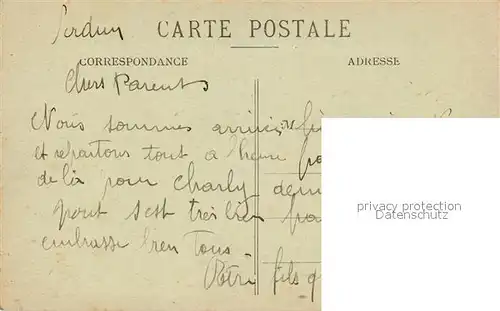 CARTE POSTALE
CORRESPONDANCE
ADRESSE
Chers Parents
Nous sommes arrivés
et repartons tout a l'heure
de la pour Charly
tout s'est très bien
embrasse bien Tous
Votre fils
privacy protection
Datenschutz